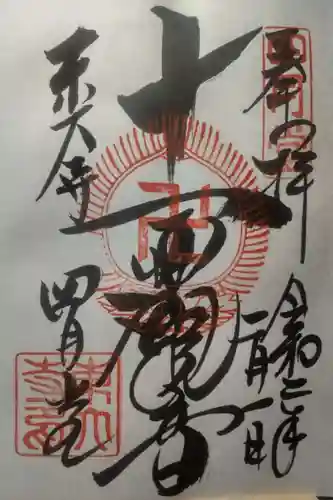 奉拝
令和二年
十一面観音
東大寺
四月堂